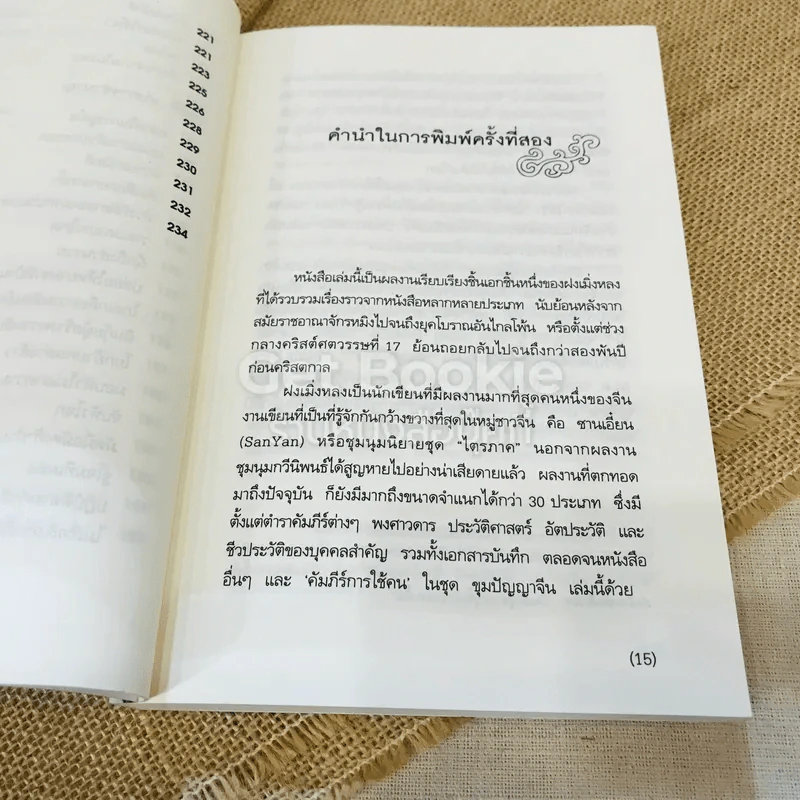 221
221
223
225
226
228
229
230
231
232
234
คำนำในการพิมพ์ครั้งที่สอง
หนังสือเล่มนี้เป็นผลงานเรียบเรียงชิ้นเอกชิ้นหนึ่งของฝงเมิ่งหลง
ที่ได้รวบรวมเรื่องราวจากหนังสือหลากหลายประเภท นับย้อนหลังจาก
สมัยราชอาณาจักรหมิงไปจนถึงยุคโบราณอันไกลโพ้น หรือตั้งแต่ช่วง
กลางคริสต์ศตวรรษที่ 17 ย้อนถอยกลับไปจนถึงกว่าสองพันปี
ก่อนคริสตกาล
ฝงเมิ่งหลงเป็นนักเขียนที่มีผลงานมากที่สุดคนหนึ่งของจีน
งานเขียนที่เป็นที่รู้จักกันกว้างขวางที่สุดในหมู่ชาวจีน คือ ซานเอี๋ยน
(SanYan) หรือชุมนุมนิยายชุด "ไตรภาค" นอกจากผลงาน
ชุมนุมกวีนิพนธ์ได้สูญหายไปอย่างน่าเสียดายแล้ว ผลงานที่ตกทอด
มาถึงปัจจุบัน ก็ยังมีมากถึงขนาดจำแนกได้กว่า 30 ประเภท ซึ่งมี
ตั้งแต่ตำราคัมภีร์ต่างๆ พงศาวดาร ประวัติศาสตร์ อัตประวัติ และ
ชีวประวัติของบุคคลสำคัญ รวมทั้งเอกสารบันทึก ตลอดจนหนังสือ
อื่นๆ และ 'คัมภีร์การใช้คน' ในชุด ขุมปัญญาจีน เล่มนี้ด้วย
(15)
Get Bookie